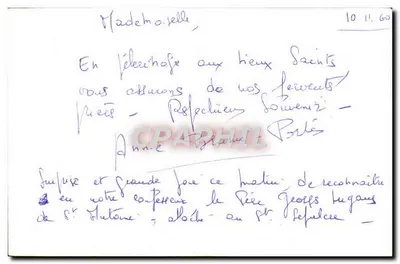 Mademoiselle,
10 11. 60
En pèlerinage aux Lieux Saints
vous assurons de nos fervents
prières - Respectueux Souvenir -
Anne
CPAPHIL
Surprise et grande joie ce matin, de reconnaitre
en notre confesseur le Père Georges
de St Antoine, au St. Sépulcre -